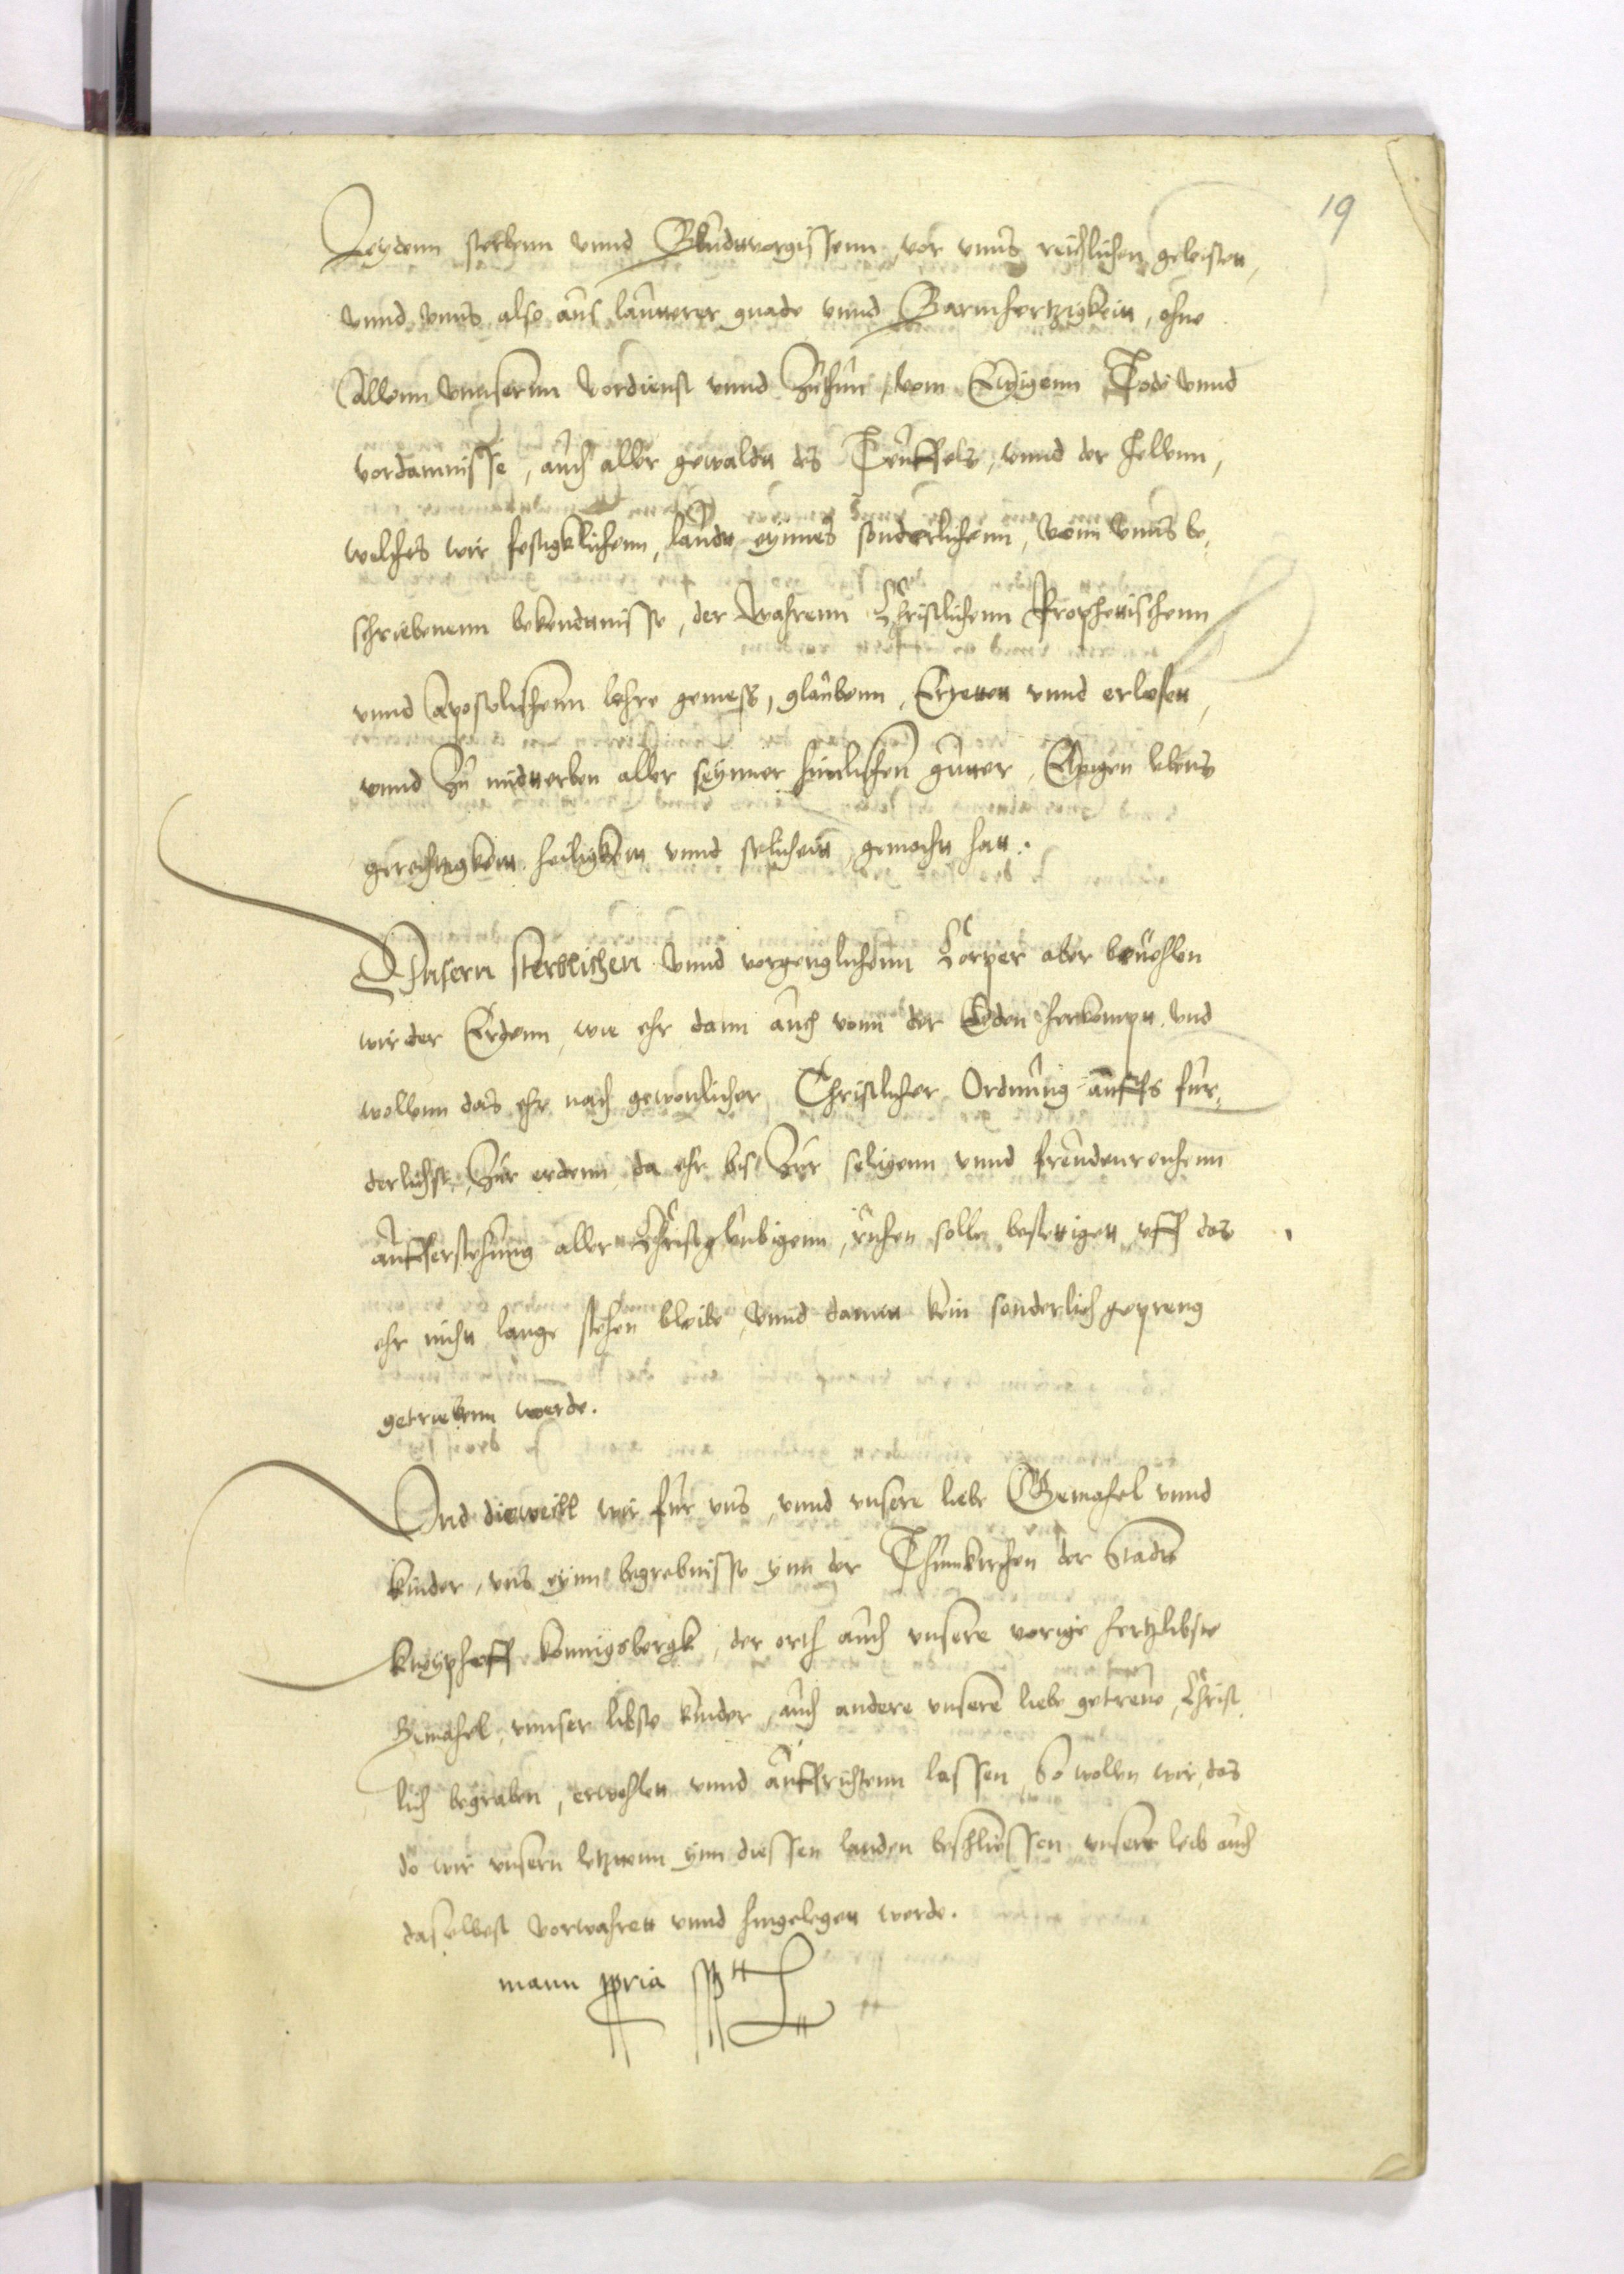 19
Leydenn sterbenn vnnd Bludttvorgissenn, vor vnns reichlichen geleistett,
vnnd vnns also aus lautterer gnade vnnd Barmhertzigkeitt, ohne
Allenn vnnsernn vordienst vnnd Zuthun, vom Ewigenn Tode vnnd
vordamnisse, auch aller gewaldtt des Teuffels, vnnd der hellenn,
welches wir festigklichenn, lautt eynnes sonderlichenn, vonn vnns be,
schriebenenn bekendtnisse, der Wahrenn Christlichenn Prophettischenn
vnnd Apostolischenn lehre gemess, glaubenn, Errettett vnnd erlosett,
vnnd Zu midtterben aller seynner himlischen gutter, Ewigen lebens
gerechtigkeitt heiligkeitt vnnd selicheitt, gemacht hatt.
Vnsern sterblichen vnnd vorgenglichenn Cörper aber beuehlen
wir der Erdenn, wie ehr dann auch vonn der Erden herkompt, vnd
wollenn das ehr nach gewonlicher Christlicher Ordnung auffs fur,
derlichst, Zur erdenn, da ehr bis Zur seligenn vnnd freudenreichenn
aufferstehung aller Christgleubigenn, ruhen solle bestettigett vff das
ehr nicht lange stehen bleibe, vnnd damitt kein sonderlich gepreng
getriebenn werde.
Vnd dieweill wir für vns, vnnd vnsere liebe Gemahel vnnd
kinder, vns eynn begrebnisse ynn der Thumkirchen der Stadtt
kneiphoff konnigsbergk, der orth auch vnsere vorige hertzlibste
Gemahel, vnnser libste kinder, auch andere vnsere liebe getreue, Christ
lich begraben, erwehlen vnnd auffrichtenn lassen, So wollen wir, das
do wir vnsern letztenn ynn diessen landen beschliessen, vnsere leib auch
daselbest vorwahrett vnnd hingelegett werde.
mann ppria sst